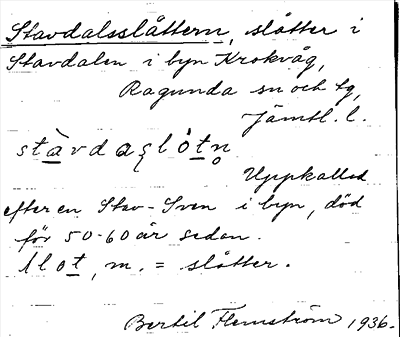 Stavdalsslåttern, slåtter i
Stavdalen i byn Krokvåg,
Ragunda sn och tg,
Jämtl. l.
stàvdaslòtn̥
Uppkallad
efter en Stav-Sven i byn, död
för 50-60 år sedan.
slot, m. = slåtter.
Bertil Flemström 1936.